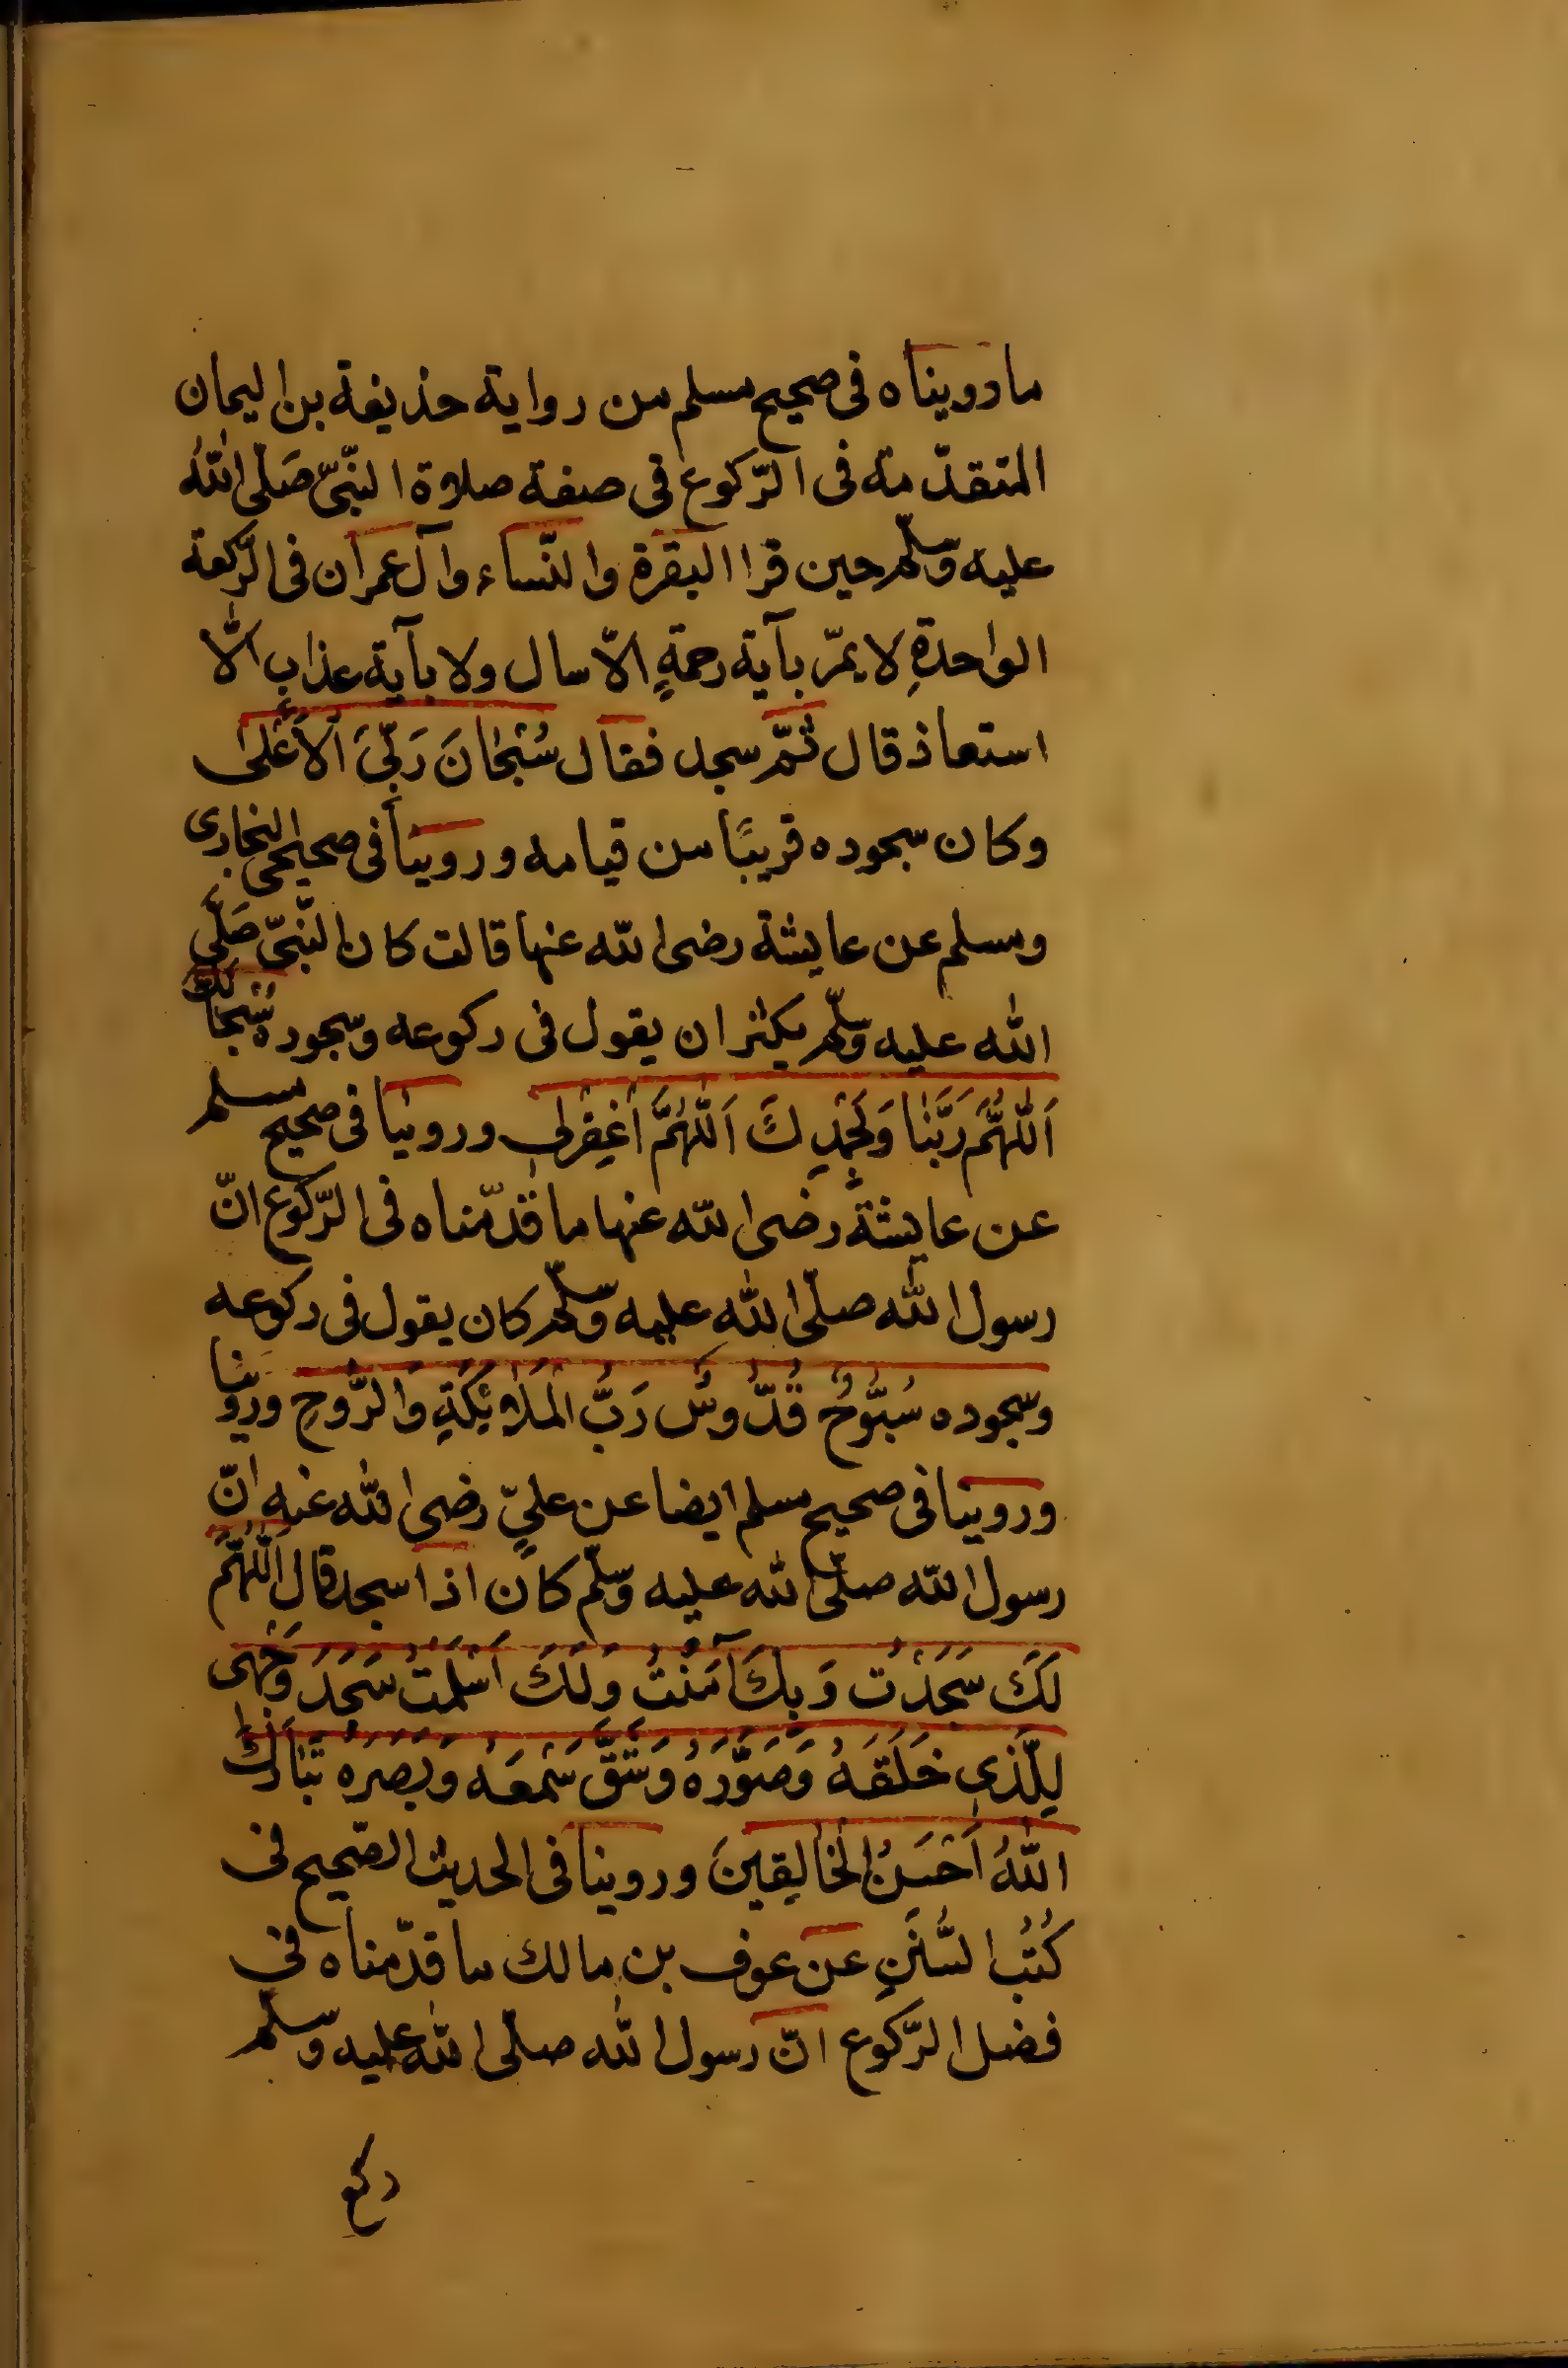 ما رويناه فى صحيح مسلم من رواية حذيفة بن اليمان
المتقدّمة فى الرّكوع فى صفة صلاة النّبىّ صَلّى اللّهُ
عليه وسلّم حين قرا البقرة والنّساء وآل عمران فى الرّكعة
الواحدةِ لا يمرّ بآية رحمةٍ الّا سال ولا بآية عذابٍ الّا
استعاذ قال ثمّ سجد فقال سُبْحَانَ رَبِّىَ الْاَعْلى
وكان سجوده قريبًا من قيامه وروينا فى صحيحى البخارى
ومسلم عن عايشة رضى اللّه عنها قالت كان النّبىّ صَلّى
اللّه عليه وسلّم يكثر ان يقول فى ركوعه وسجوده سُبْحَانَكَ
اَللّٰهُمَّ رَبَّنَا وَبِحَمْدِكَ اَللّٰهُمَّ اغْفِرْلِى وروينا فى صحيح مسلم
عن عايشة رضى اللّه عنها ما قدّمناه فى الرّكوع انّ
رسول اللّه صلّى اللّه عليه وسلّم كان يقول فى ركوعه
وسجوده سُبُّوحٌ قُدُّوسٌ رَبُّ الْمَلَائِكَةِ وَالرُّوحِ وروينا
وروينا فى صحيح مسلم ايضا عن علىٍّ رضى اللّه عنه انّ
رسول اللّه صلّى اللّه عليه وسلّم كان اذا سجد قال اَللّٰهُمَّ
لَكَ سَجَدْتُ وَبِكَ آمَنْتُ وَلَكَ اَسْلَمْتُ سَجَدَ وَجْهِى
لِلَّذِى خَلَقَهُ وَصَوَّرَهُ وَشَقَّ سَمْعَهُ وَبَصَرَهُ تَبَارَكَ
اللّٰهُ اَحْسَنُ الْخَالِقِينَ وروينا فى الحديث الصّحيح فى
كُتُب السُّنَنِ عن عوف بن مالك ما قدّمناه فى
فضل الرّكوع انّ رسول اللّه صلّى اللّه عليه وسلّم
ركع